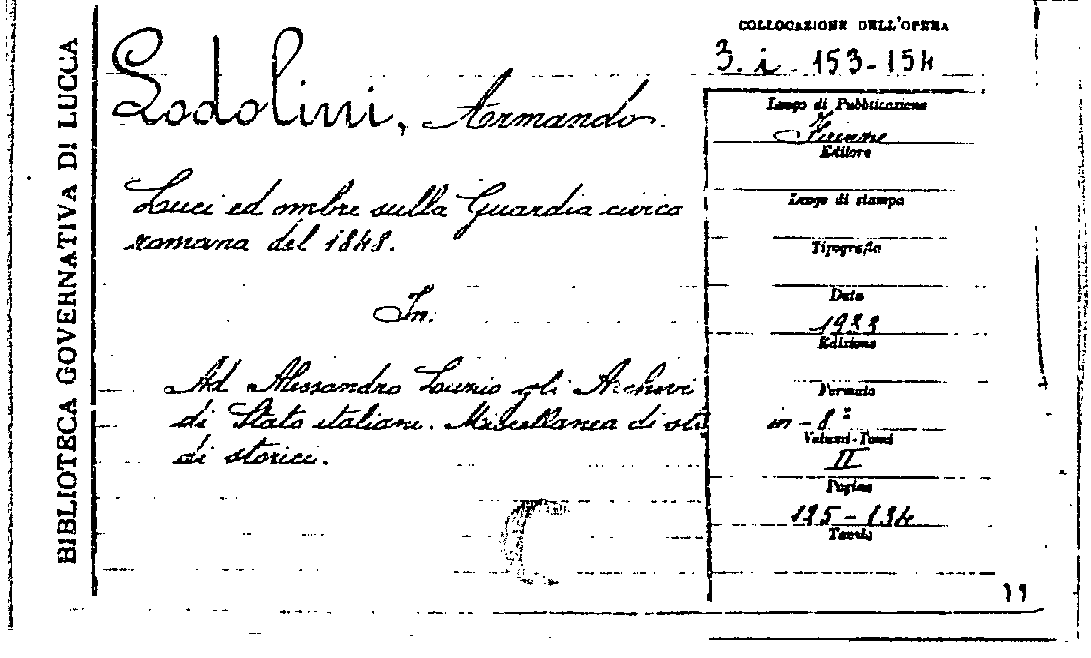 BIBLIOTECA GOVERNATIVA DI LUCCA
Lodolini, Armando.
Luci ed ombre sulla Guardia civica
romana del 1848.
In:
Ad Alessandro Luzio gli Archivi
di Stato italiani. Miscellanea di studi
di storici.
COLLOCAZIONE DELL'OPERA
3. i. 153-154
Luogo di Pubblicazione
Firenze
Editore
Luogo di stampa
Tipografia
Data
1933
Edizione
Formato
in-8º
Volumi-Tomi
II
Pagine
125-134
Tavole
11